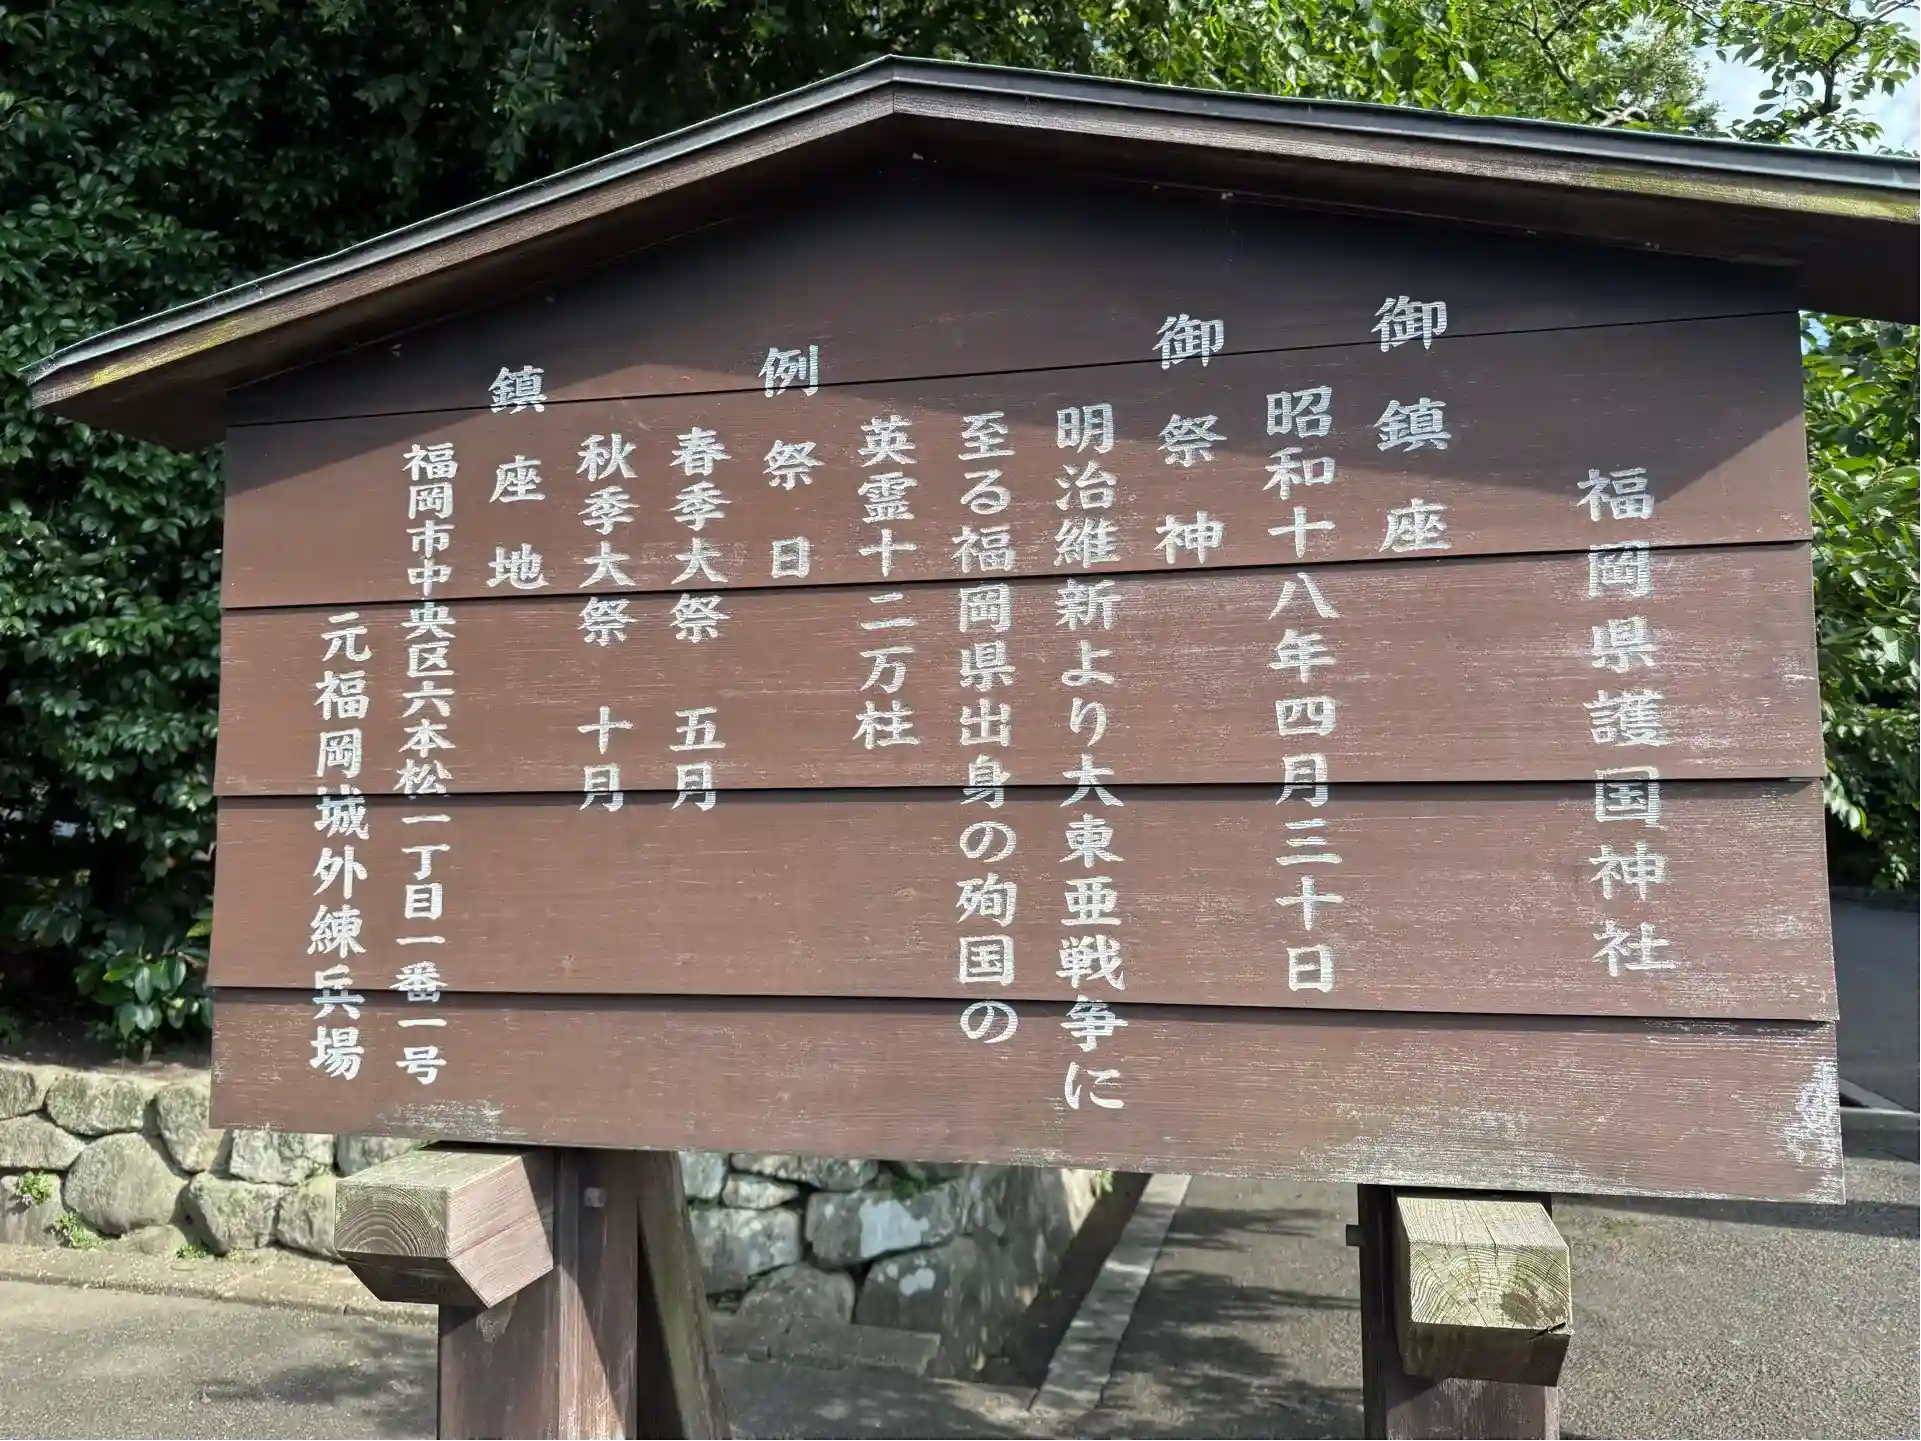 福岡県護国神社
御鎮座
昭和十八年四月三十日
御祭神
明治維新より大東亜戦争に
至る福岡県出身の殉国の
英霊十二万柱
例祭日
春季大祭 五月
秋季大祭 十月
鎮座地
福岡市中央区六本松一丁目一番一号
元福岡城外練兵場